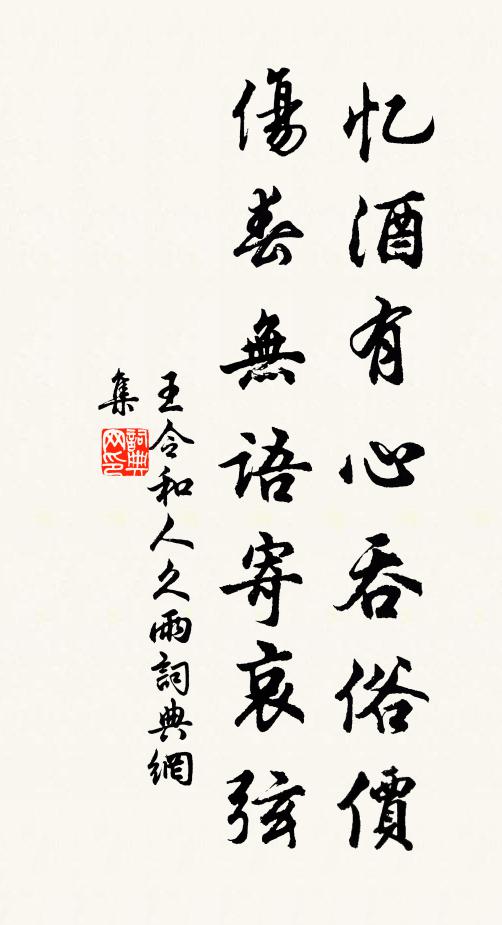 忆酒有心吞俗價
傷春無語寄哀弦
王令和人久雨詞典網
集
詞典
网印